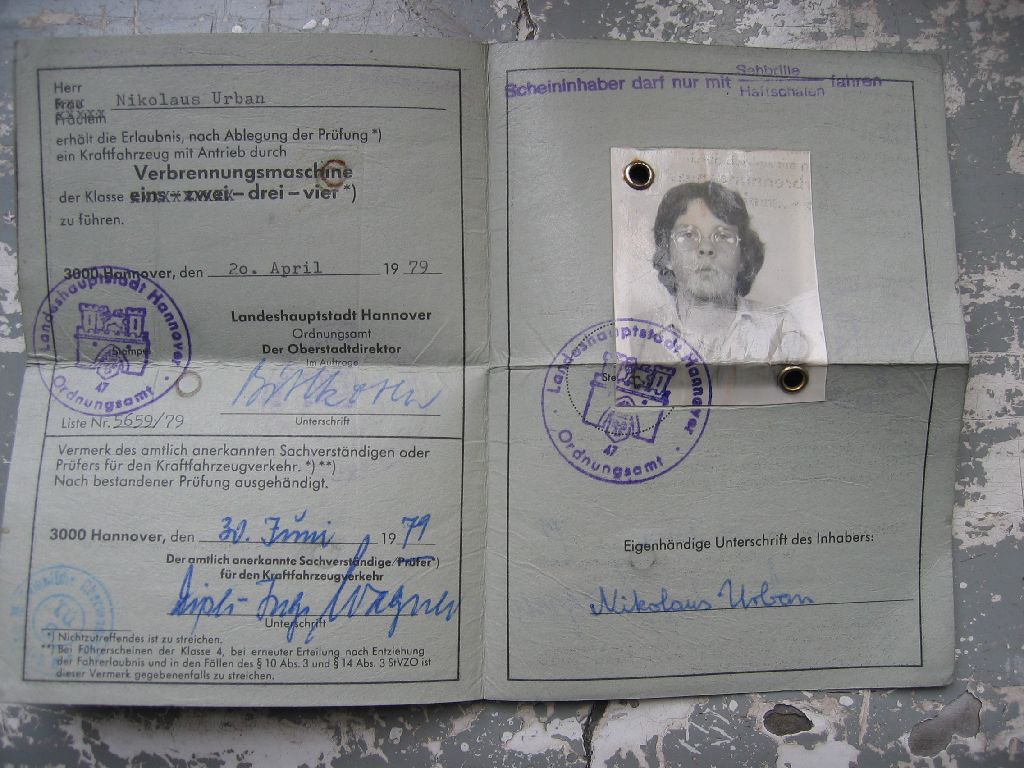 Herr
Frau
Fräulein
Nikolaus Urban
erhält die Erlaubnis, nach Ablegung der Prüfung *)
ein Kraftfahrzeug mit Antrieb durch
Verbrennungsmaschine
der Klasse eins – zwei – drei – vier *)
zu führen.
3000 Hannover, den 20. April 19 79
Landeshauptstadt Hannover
Ordnungsamt
Der Oberstadtdirektor
Im Auftrage
Landeshauptstadt Hannover
Stempel
47
Ordnungsamt
Liste Nr. 5659/79
Unterschrift
Vermerk des amtlich anerkannten Sachverständigen oder
Prüfers für den Kraftfahrzeugverkehr. *) **)
Nach bestandener Prüfung ausgehändigt.
3000 Hannover, den 30. Juni 19 79
Der amtlich anerkannte Sachverständige/Prüfer *)
für den Kraftfahrzeugverkehr
Dipl.-Ing. Wagner
Unterschrift
*) Nichtzutreffendes ist zu streichen.
**) Bei Führerscheinen der Klasse 4, bei erneuter Erteilung nach Entziehung
der Fahrerlaubnis und in den Fällen des § 10 Abs. 3 und § 14 Abs. 3 StVZO ist
dieser Vermerk gegebenenfalls zu streichen.
Scheininhaber darf nur mit Sehbrille Haftschalen fahren
Landeshauptstadt Hannover
Ste
47
Ordnungsamt
Eigenhändige Unterschrift des Inhabers:
Nikolaus Urban